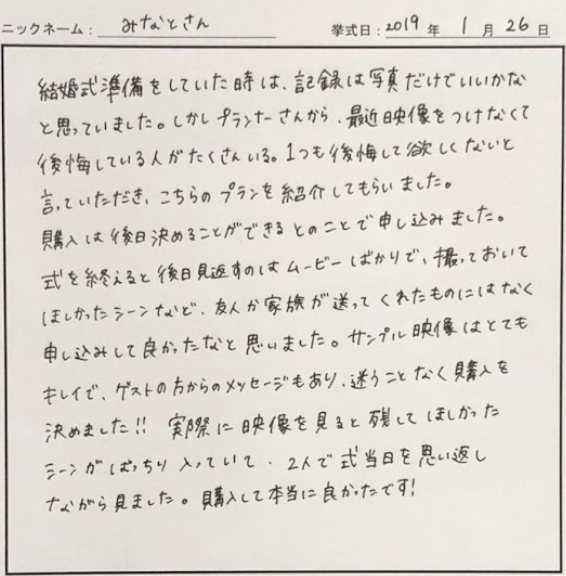 ニックネーム: みなとさん 挙式日: 2019 年 1 月 26 日
結婚式準備をしていた時は、記録は写真だけでいいかな
と思っていました。しかしプランナーさんから、最近映像をつけなくて
後悔している人がたくさんいる。1つも後悔して欲しくないと
言っていただき、こちらのプランを紹介してもらいました。
購入は後日決めることができるとのことで申し込みました。
式を終えると後日見返すのはムービーばかりで、撮っておいて
ほしかったシーンなど、友人か家族が送ってくれたものにはなく
申し込みして良かったなと思いました。サンプル映像はとても
キレイで、ゲストの方からのメッセージもあり、迷うことなく購入を
決めました!! 実際に映像を見ると残してほしかった
シーンがばっちり入っていて、2人で式当日を思い返し
ながら見ました。購入して本当に良かったです!